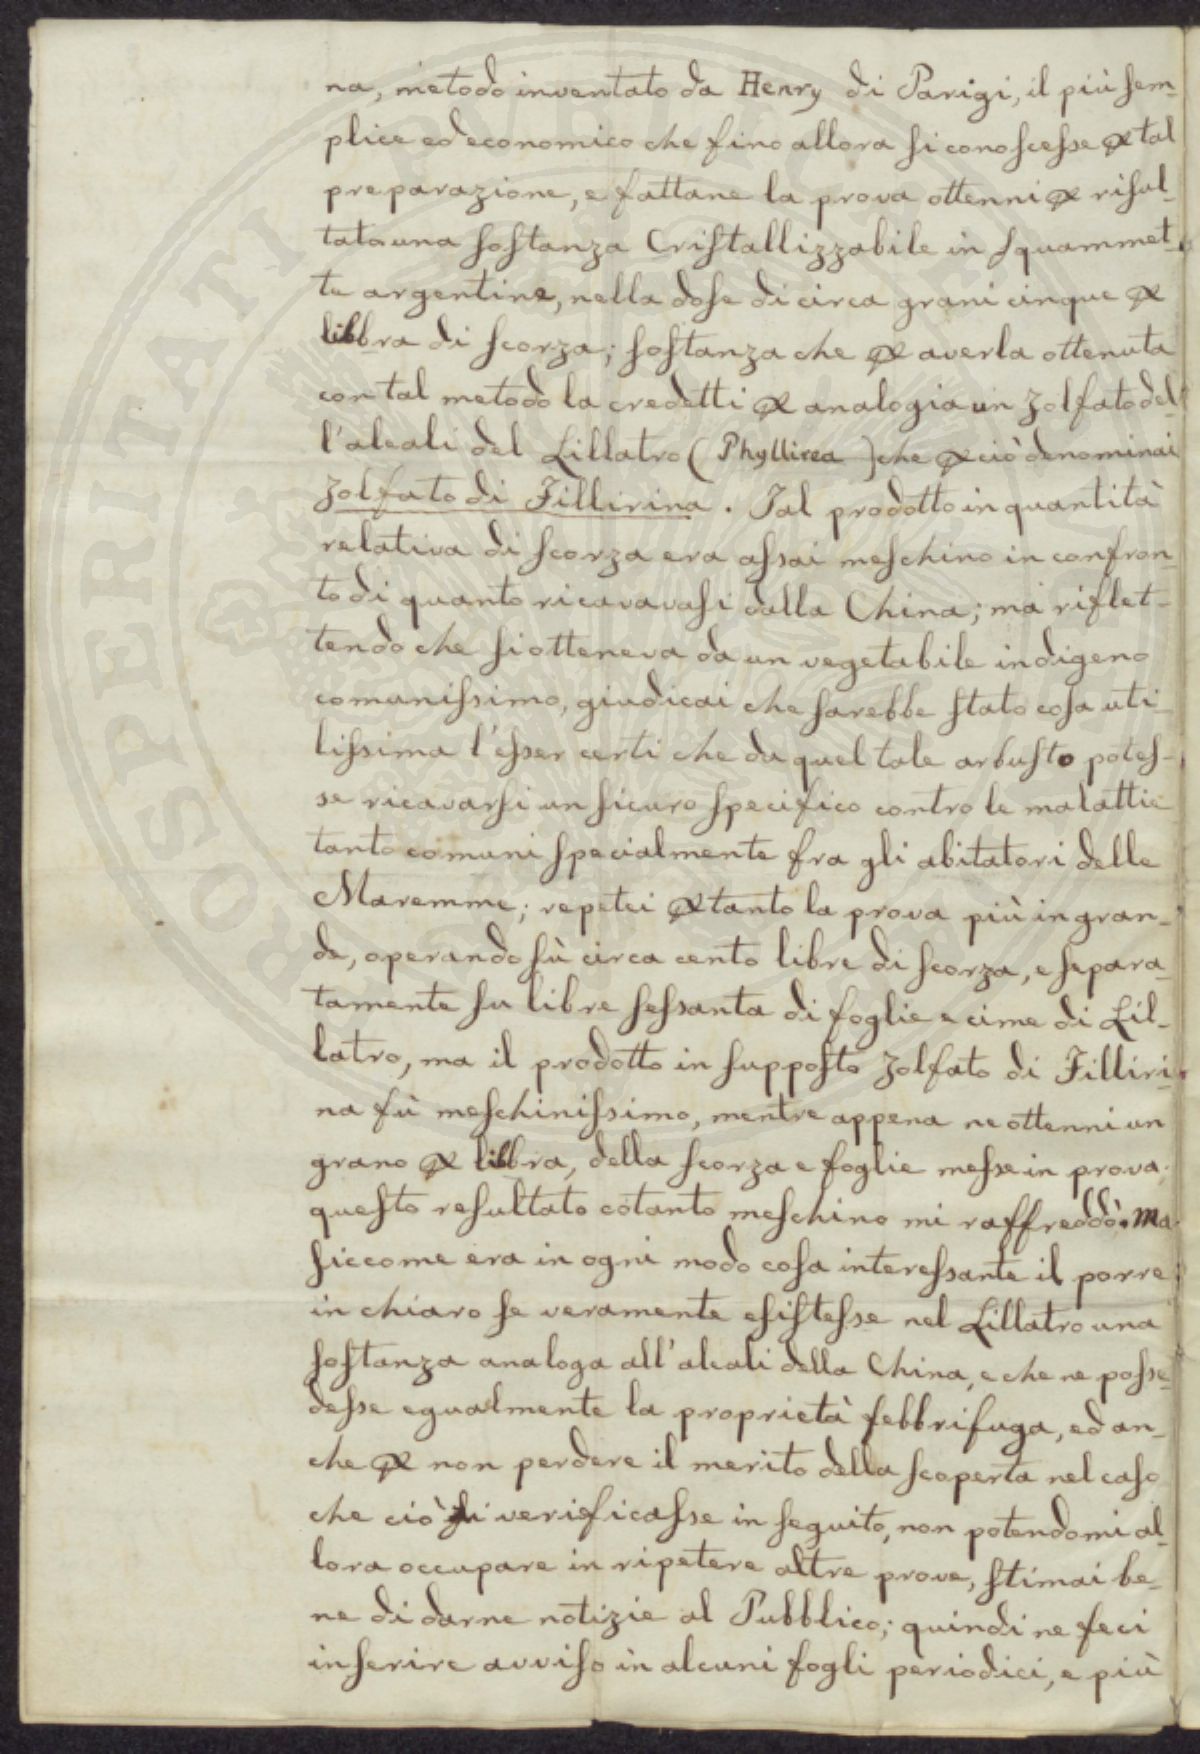 na, metodo inventato da Henry di Parigi, il più sem-
plice ed economico che fino allora si conoscesse ꝑ tal
preparazione, e fattane la prova ottenni ꝑ risul-
tato una sostanza Cristallizzabile in squammet-
te argentine, nella dose di circa grani cinque ꝑ
libbra di scorza; sostanza che ꝑ averla ottenuta
con tal metodo la credetti ꝑ analogia un zolfato del-
l'alcali del Lillatro (Phyllirea) che ꝑ ciò denominai
Zolfato di Fillirina. Tal prodotto in quantità
relativa di scorza era assai meschino in confron-
to di quanto ricavavasi dalla China; ma riflet-
tendo che si otteneva da un vegetabile indigeno
comunissimo, giudicai che sarebbe stato cosa uti-
lissima l'esser certi che da quel tale arbusto potes-
se ricavarsi un sicuro specifico contro le malattie
tanto comuni specialmente fra gli abitatori delle
Maremme; repetei ꝑtanto la prova più in gran-
de, operando sù circa cento libre di scorza, e separa-
tamente su libre sessanta di foglie e cime di Lil-
latro, ma il prodotto in supposto zolfato di Filliri-
na fù meschinissimo, mentre appena ne ottenni un
grano ꝑ libbra, della scorza e foglie messe in prova;
questo resultato cotanto meschino mi raffreddò. Ma
siccome era in ogni modo cosa interessante il porre
in chiaro se veramente esistesse nel Lillatro una
sostanza analoga all'alcali della China, e che ne posse-
desse egualmente la proprietà febbrifuga, ed an-
che ꝑ non perdere il merito della scoperta nel caso
che ciò si verificasse in seguito, non potendomi al-
lora occupare in ripetere altre prove, stimai be-
ne di darne notizie al Pubblico; quindi ne feci
inserire avviso in alcuni fogli periodici, e più
PROSPERITATI PUBLICAE